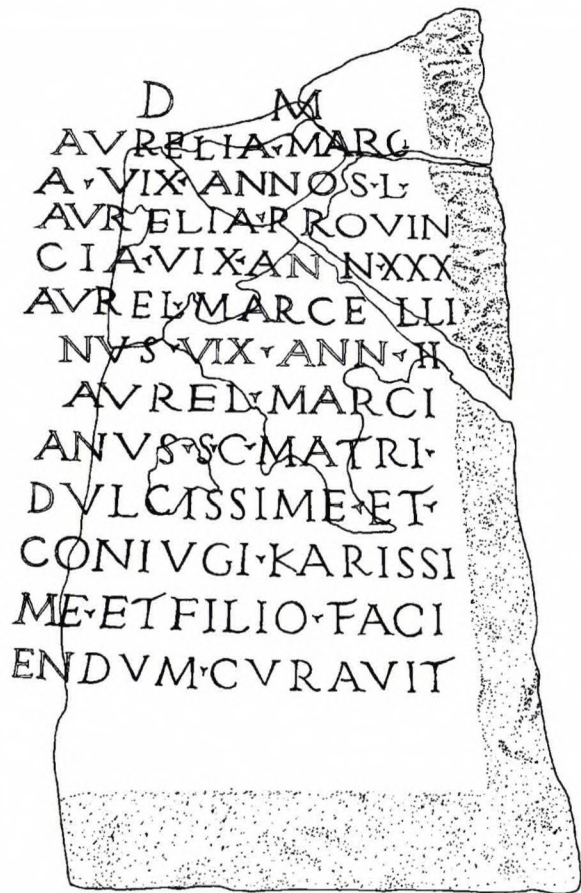 D M
AVRELIA·MARC
A·VIX·ANNOS·L·
AVRELIA·PROVIN
CIA·VIX·ANN·XXX
AVREL·MARCELLI
NVS·VIX·ANN·II
AVREL·MARCI
ANVS·SC·MATRI·
DVLCISSIME·ET·
CONIVGI·KARISSI
ME·ET FILIO·FACI
ENDVM·CVRAVIT